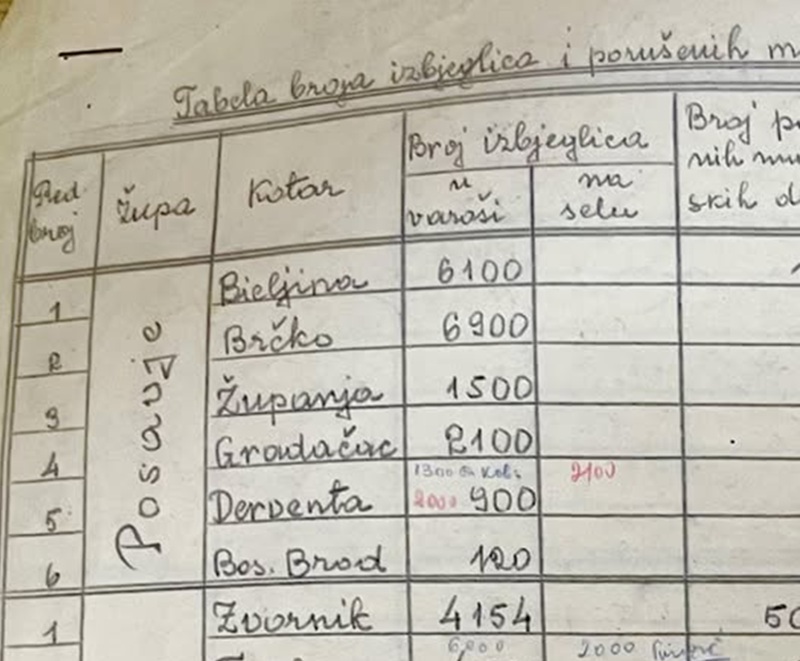 Tabela broja izbjeglica i porušenih m
Red. broj Župa Kotar Broj izbjeglica Broj po
u varoši na selu nih mu
skih d
Posavje
1 Bieljina 6100
2 Brčko 6900
3 Županja 1500
4 Gradačac 2100
1300 2100
5 Derventa 2000 900
6 Bos. Brod 120
1 Zvornik 4154 50
6,000 2000